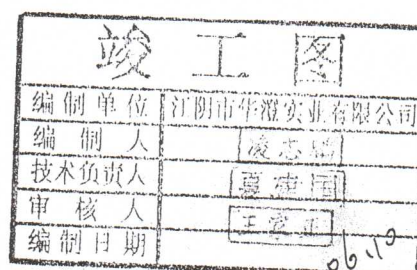 竣工图
编制单位 江阴市华澄实业有限公司
编制人 凌志
技术负责人 夏建国
审核人 王
编制日期 06.10